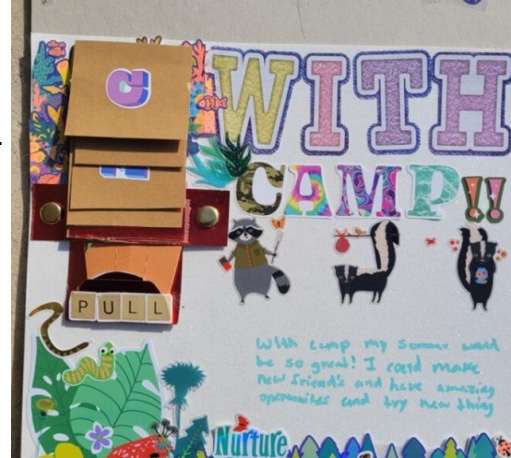 C
WITH
CAMP!!
PULL
With camp my sommer would
be so great! I could make
new friends and have amazing
opernuites and try new thing
Nurture